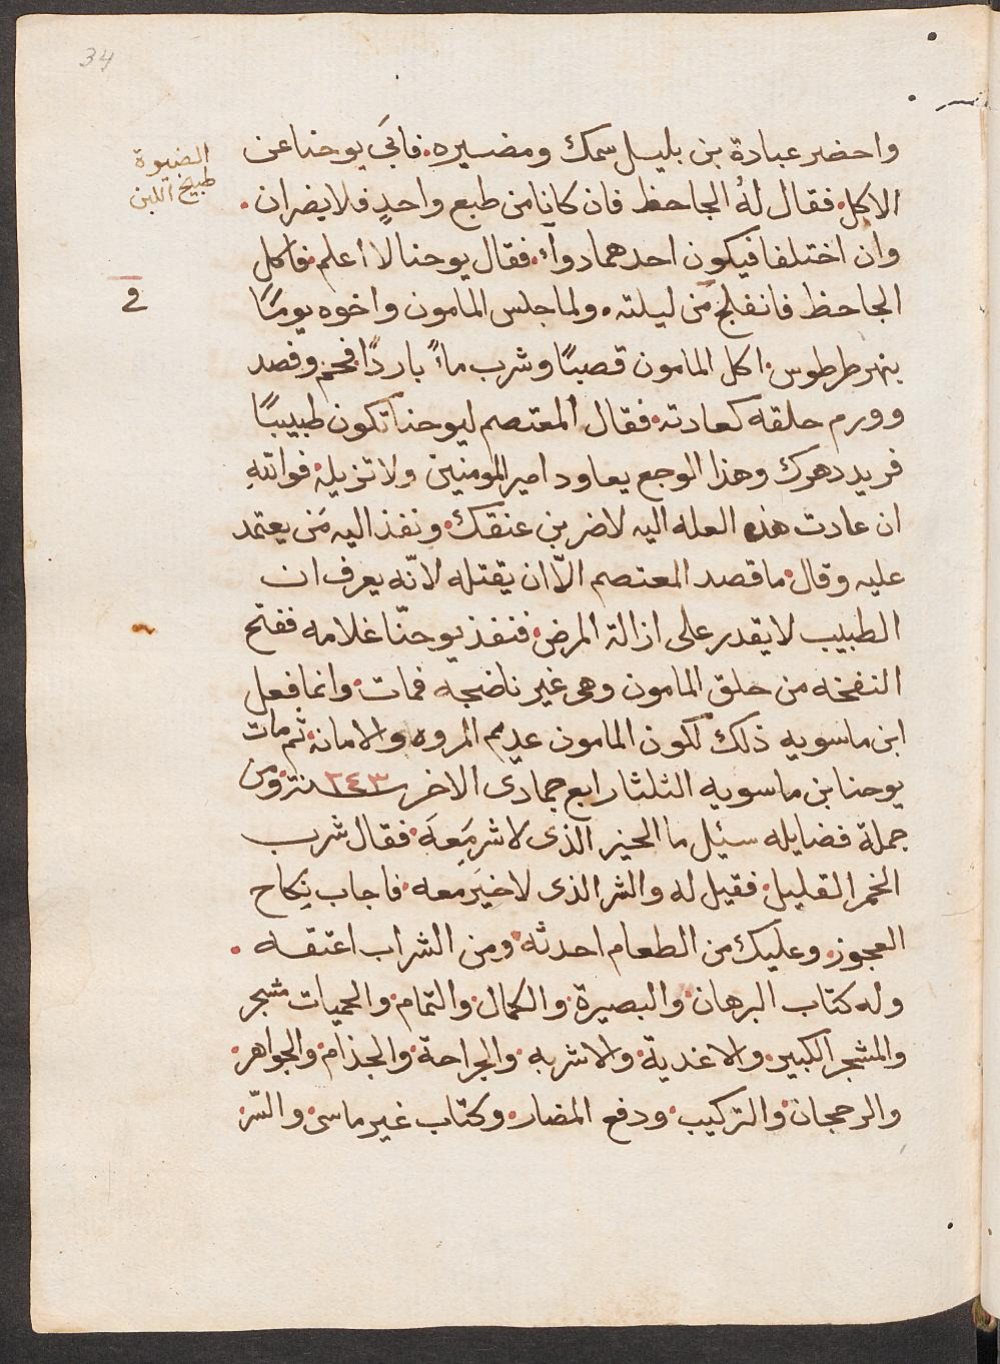 34
واحضر عبادة بن بليل سمك ومضيره. فابَي يوحنا عن
الاكل. فقال لهُ الجاحظ فان كانا من طبع واحدٍ فلا يضران.
وان اختلفا فيكون احدهما دواءً. فقال يوحنا لا أعلم. فاكل
الجاحظ فانفلج مَن ليلته. ولما جلس المامون واخوه يومًا
بنهر طرطوس. اكل المامون قصبًا وشرب ماءً باردًا. فحم وفصد
وورم حلقه كعادته. فقال المعتصم ليوحنا تكون طبيبًا
فريد دهرك وهذا الوجع يعاود امير المومنين ولا تزيله. فواللهِ
ان عادت هذه العله اليه لاضربن عنقك. ونفذ اليه مَن يعتمد
عليه وقال. ما قصد المعتصم الاّ ان يقتله لانّه يعرف ان
الطبيب لا يقدر على ازالة المرض. فنفذ يوحنّا غلامه ففتح
النفخه من حلق المامون وهى غير ناضجه فمات. وانما فعل
ابن ماسويه ذلك لكون المامون عديم المروه والامانة. ثم مات
يوحنا بن ماسويه الثلثا رابع جمادى الاخر سنة ٢٤٣. ومن
جملة فضايله سئيل ما الخير الذى لا شر مَعِهَ. فقال شرب
الخمر القليل. فقيل له والشر الذى لا خيَر معه. فاجاب نِكاح
العجوز. وعليك من الطعام احدثه. ومن الشراب اعتقه.
وله كتاب البرهان. والبصيرة. والكمال. والتمام. والحميات مشجر
والمشجر الكبير. والاغدية. والاشربه. والجراحة. والجذام. والجواهر.
والرجحان. والتركيب. ودفع المضار. وكتاب غير ماسى. والسّر.
طبيخ اللبن